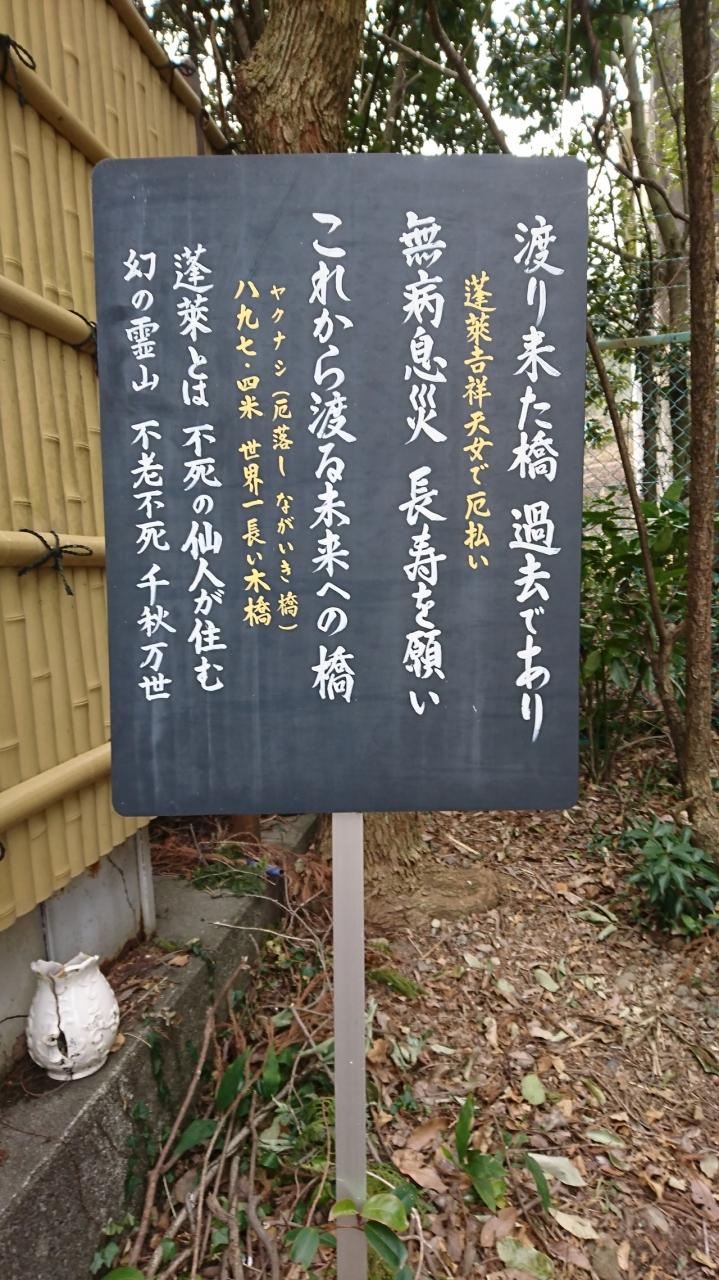 渡り来た橋 過去であり
蓬莱吉祥天女で厄払い
無病息災 長寿を願い
これから渡る未来への橋
ヤクナシ(厄落し ながいき橋)
八九七・四米 世界一長い木橋
蓬莱とは 不死の仙人が住む
幻の霊山 不老不死 千秋万世